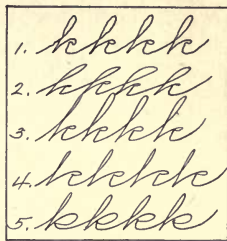 1. kkkkk
2. kkkkk
3. kkkkk
4. kkkkk
5. kkkkk